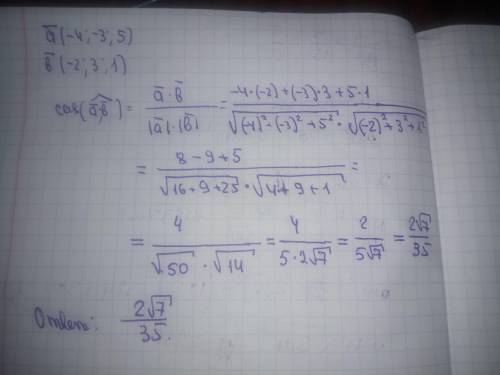 a̅(-4; -3; 5)
b̅(-2; 3; 1)
cos(a̅,b̅) = a̅·b̅ / |a̅|·|b̅| = -4·(-2)+(-3)·3+5·1 / √(-4)²+(-3)²+5² · √(-2)²+3²+1²
= 8-9+5 / √16+9+25 · √4+9+1 =
= 4 / √50 · √14 = 4 / 5·2√7 = 2 / 5√7 = 2√7 / 35
Ответ: 2√7 / 35.